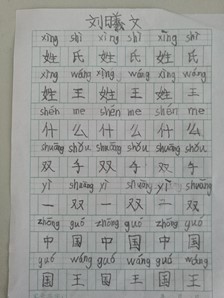 刘曦文
xìng shì xìng shì xìng shì
姓 氏 姓 氏 姓 氏
xìng wáng xìng wáng xìng wáng
姓 王 姓 王 姓 王
shén me shén me shén me
什 么 什 么 什 么
shuāng shǒu shuāng shǒu shuāng shǒu
双 手 双 手 双 手
yī shuāng yī shuāng yī shuāng
一 双 一 双 一 双
zhōng guó zhōng guó zhōng guó
中 国 中 国 中 国
guó wáng guó wáng guó wáng
国 王 国 王 国 王